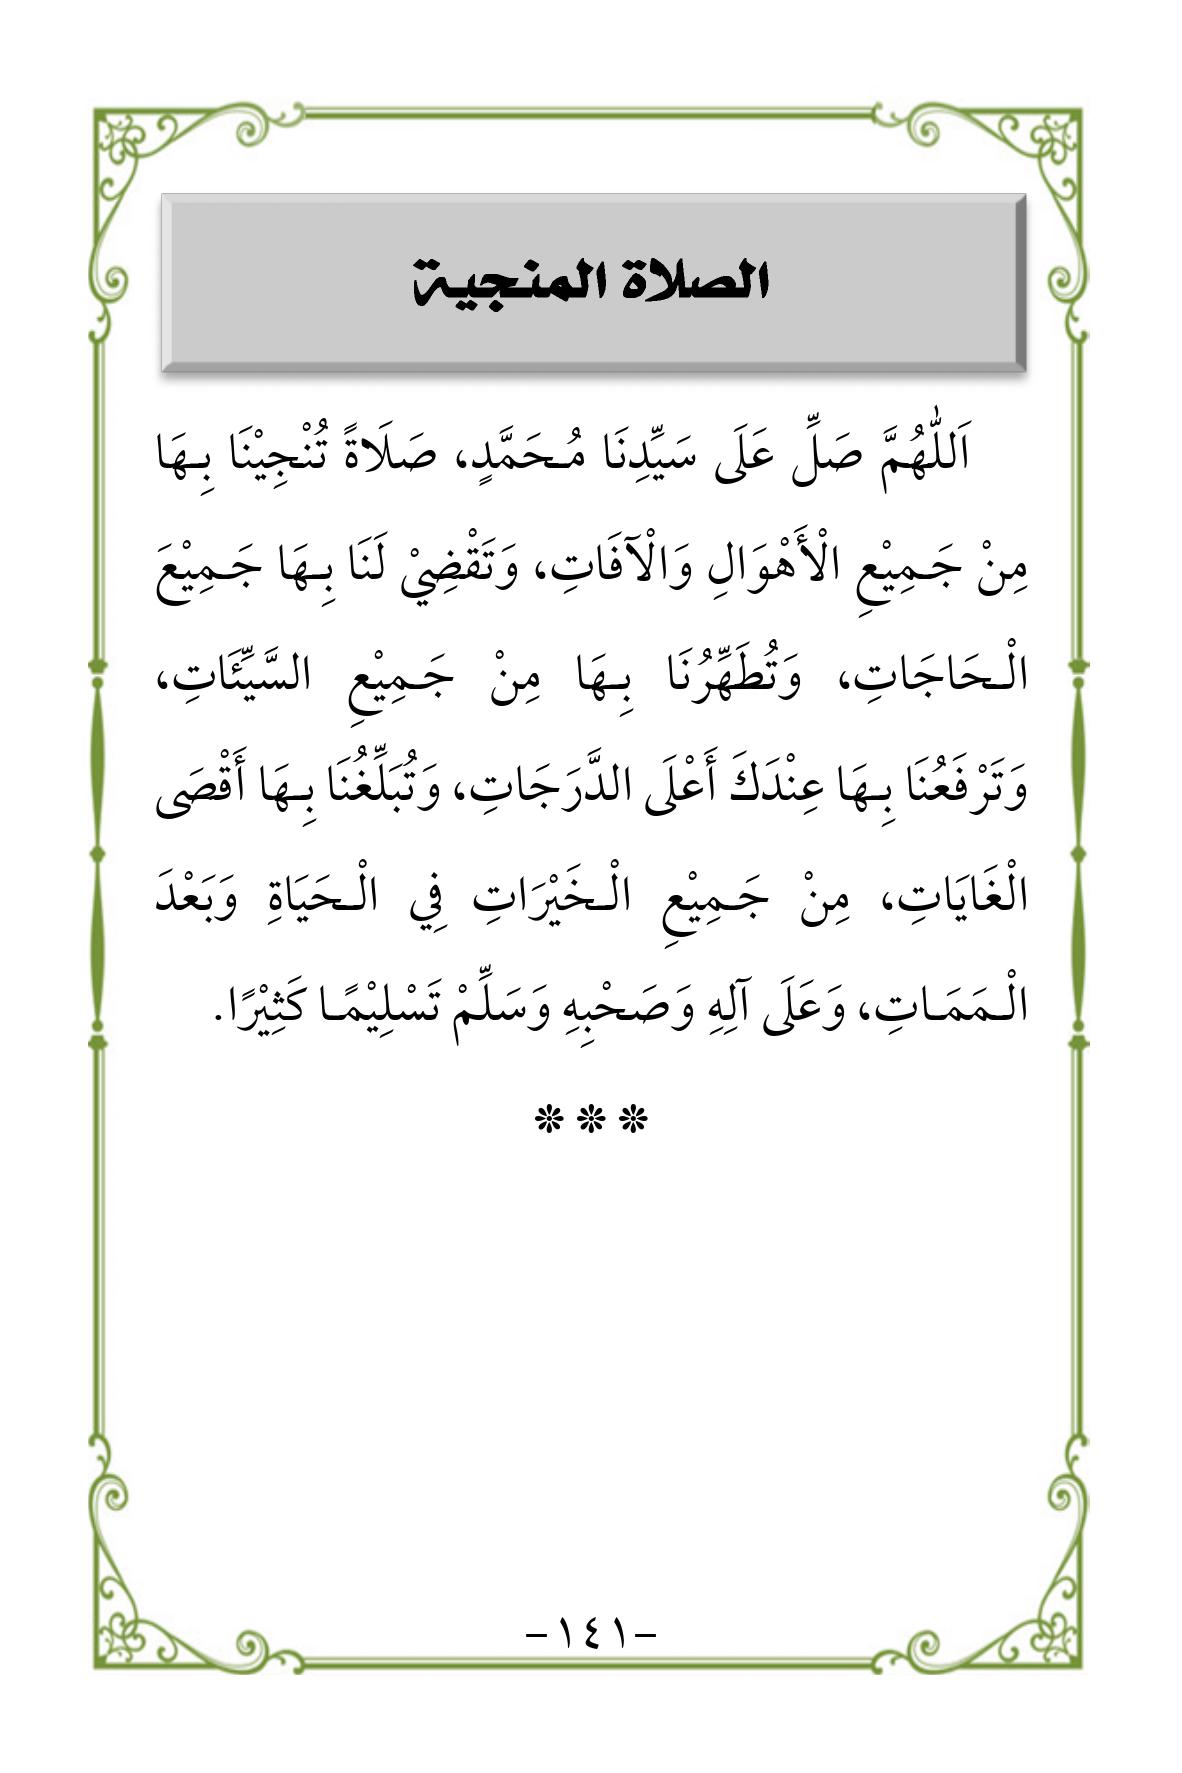 الصلاة المنجية
اَللّٰهُمَّ صَلِّ عَلَى سَيِّدِنَا مُـحَمَّدٍ، صَلَاةً تُنْجِيْنَا بِـهَا
مِنْ جَـمِيْعِ الْأَهْوَالِ وَالْآفَاتِ، وَتَقْضِيْ لَنَا بِـهَا جَـمِيْعَ
الْـحَاجَاتِ، وَتُطَهِّرُنَا بِـهَا مِنْ جَـمِيْعِ السَّيِّئَاتِ،
وَتَرْفَعُنَا بِـهَا عِنْدَكَ أَعْلَى الدَّرَجَاتِ، وَتُبَلِّغُنَا بِـهَا أَقْصَى
الْغَايَاتِ، مِنْ جَـمِيْعِ الْـخَيْرَاتِ فِي الْـحَيَاةِ وَبَعْدَ
الْـمَمَـاتِ، وَعَلَى آلِهِ وَصَحْبِهِ وَسَلِّمْ تَسْلِيْمًـا كَثِيْرًا.
❊ ❊ ❊
–١٤١–